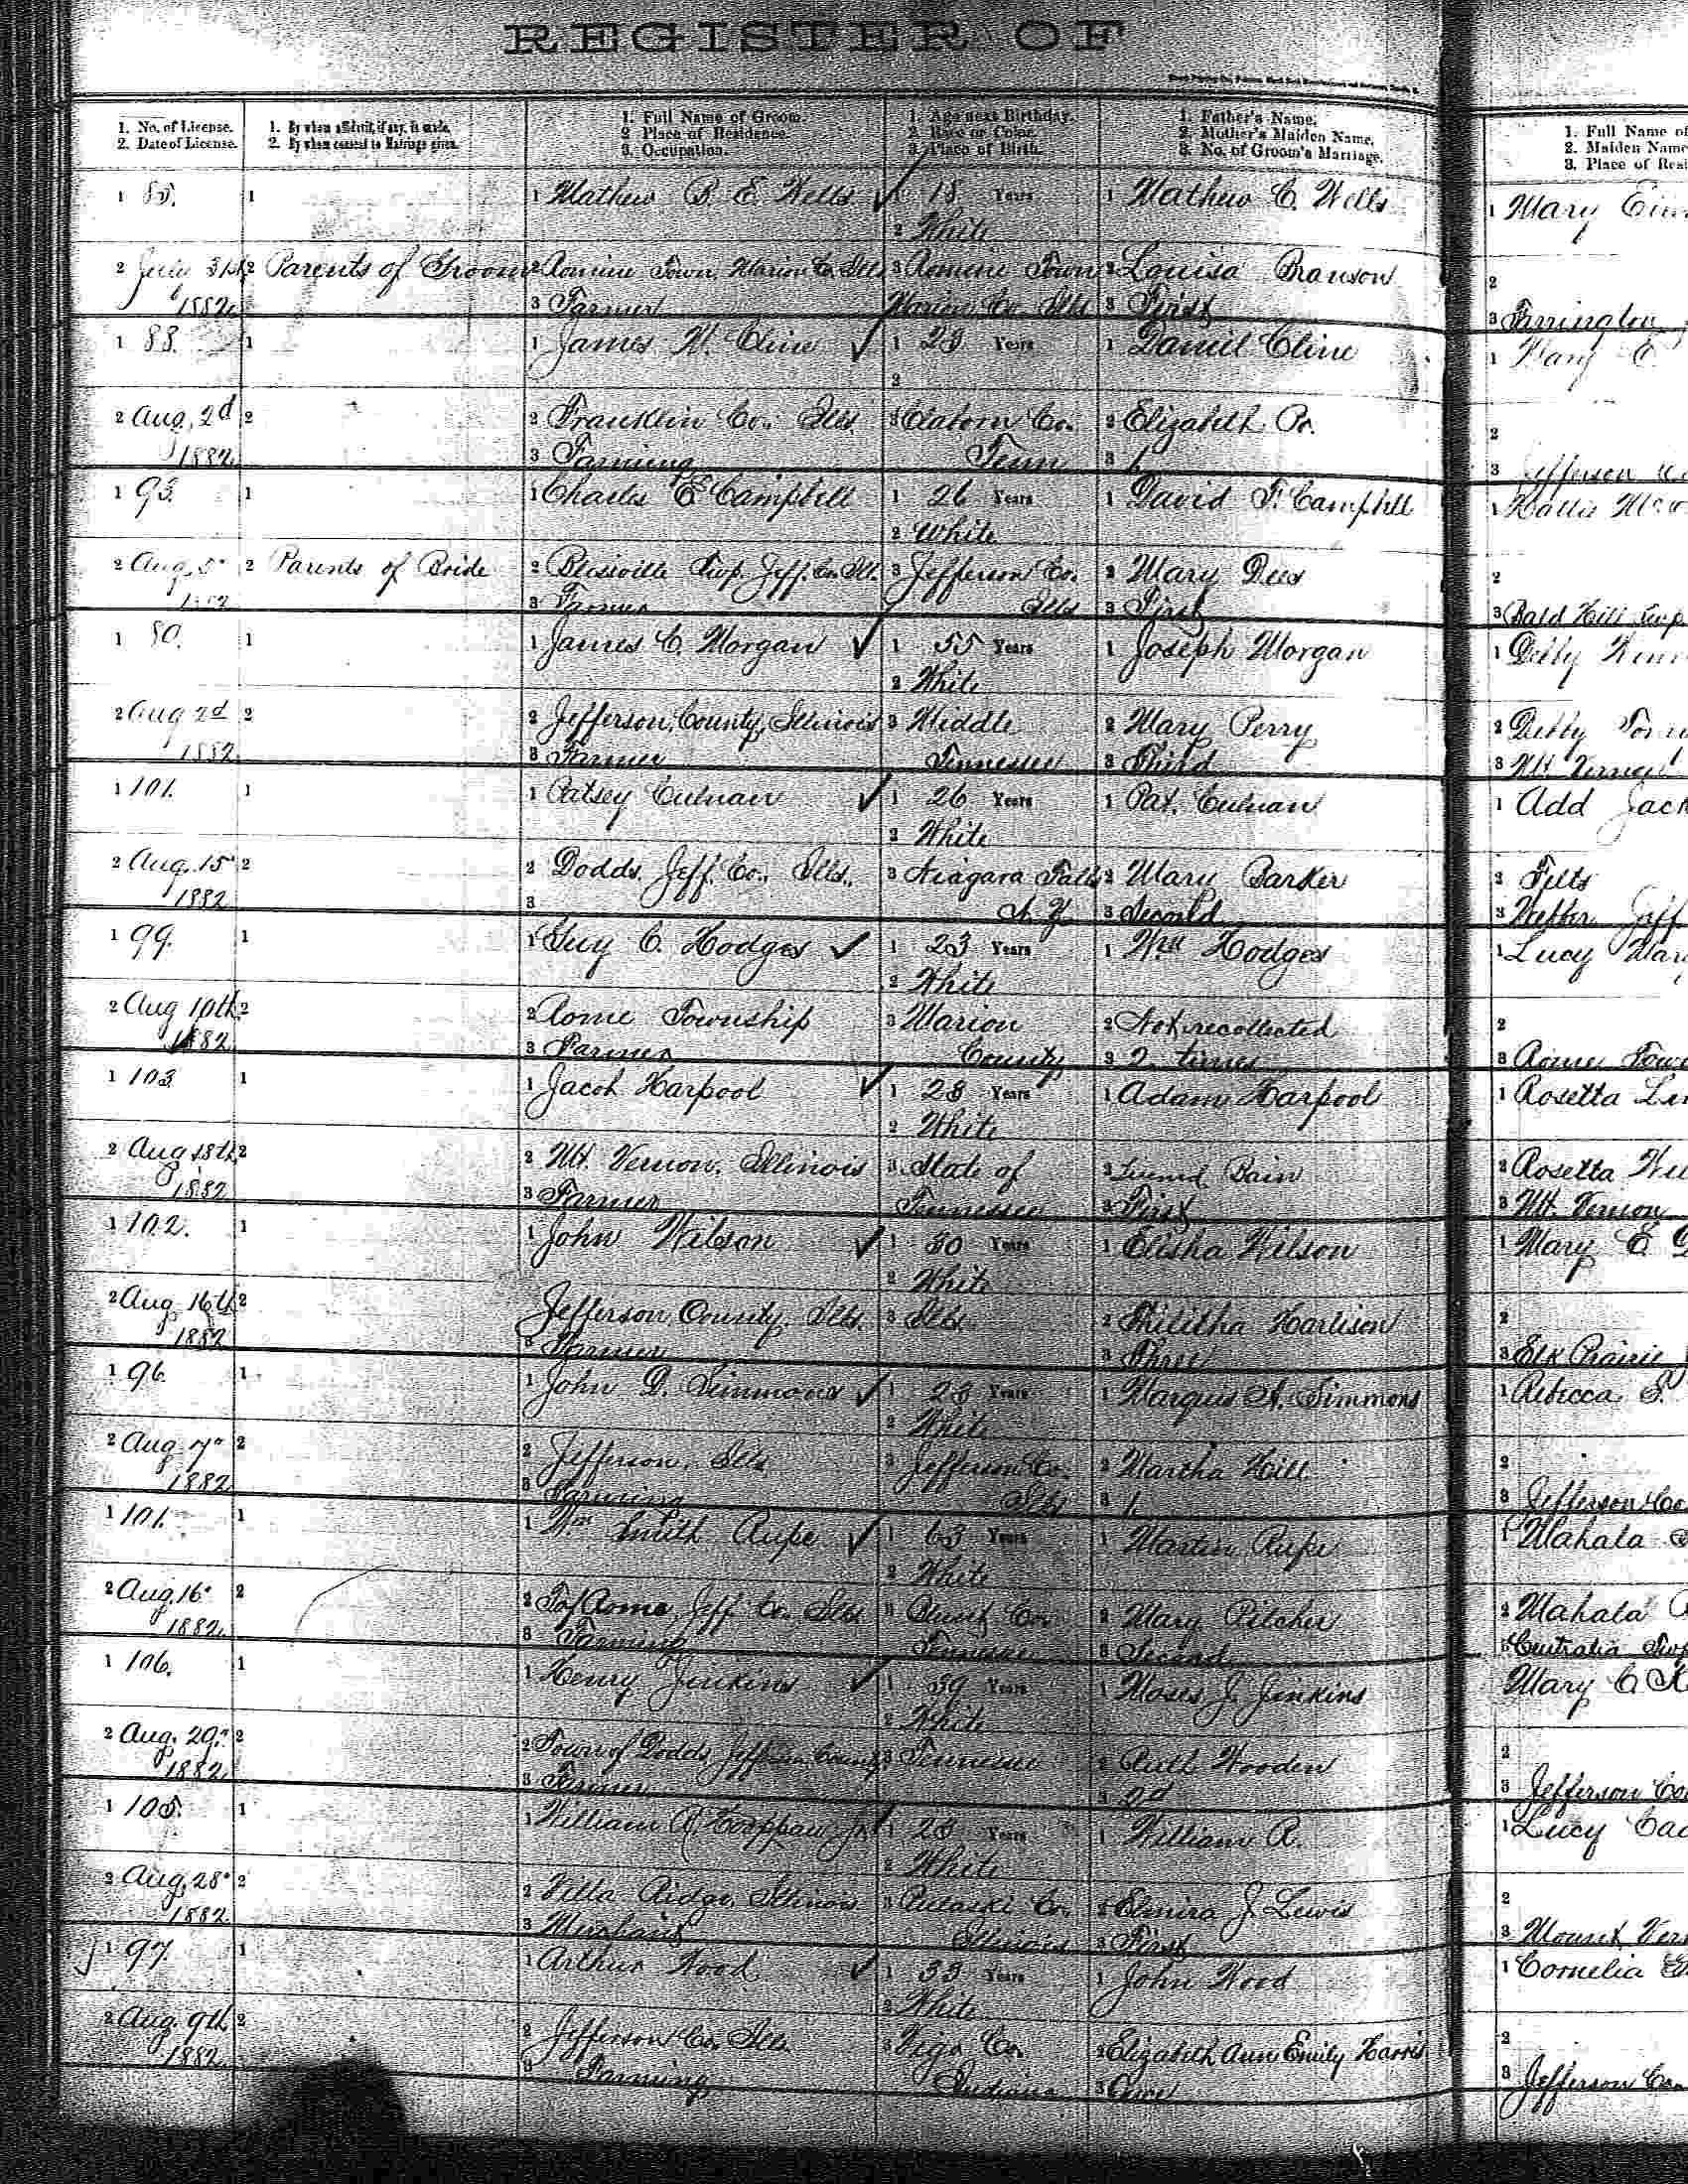 REGISTER OF
1. No. of License.
2. Date of License.
1. By whom affidavit, if any, is made.
2. By whom consent to Marriage given.
1. Full Name of Groom.
2. Place of Residence.
3. Occupation.
1. Age next Birthday.
2. Race or Color.
3. Place of Birth.
1. Father's Name.
2. Mother's Maiden Name.
3. No. of Groom's Marriage.
1. Full Name of
2. Maiden Name
3. Place of Resi
1 85. 1 1 Mathew B. E. Wells 1 18 Years 1 Mathew C. Wells 1 Mary
2 White
2 July 31st 2 Parents of Groom 2 Romine Town, Marion Co Ills 3 Romine Town 2 Louisa Branson 2
1882 3 Farmer Marion Co Ills 3 First 3 Farrington
1 88. 1 1 James H. Cline 1 23 Years 1 Daniel Cline 1 Mary E
2
2 Aug. 2d 2 2 Franklin Co. Ills 3 Claborn Co. 2 Elizabeth 2
1882 3 Farming Tenn 3 1 3 Jefferson
1 93. 1 1 Charles E Campbell 1 26 Years 1 David F. Campbell 1 Hattie
2 White
2 Aug. 5" 2 Parents of Bride 2 Blissville Twp. Jeff. Co. Ill. 3 Jefferson Co. 2 Mary Dees 2
1882 3 Farmer Ills 3 First 3 Bald Hill Twp
1 80. 1 1 James C. Morgan 1 55 Years 1 Joseph Morgan 1 Debby
2 White
2 Aug 2d 2 2 Jefferson County, Illinois 3 Middle 2 Mary Perry 2 Debby
1882 3 Farmer Tennessee 3 Third 3 Mt. Vernon
1 101. 1 1 Patsey Culnan 1 26 Years 1 Pat. Culnan 1 Add Jack
2 White
2 Aug. 15 2 2 Dodds, Jeff. Co., Ills., 3 Niagara Falls 2 Mary Barker 2 Felts
1882 3 N. Y. 3 Second 3 Webber Jeff
1 99. 1 1 Guy C. Hodges 1 23 Years 1 Wm Hodges 1 Lucy
2 White
2 Aug 10th 2 2 Rome Township 3 Marion 2 Not recollected 2
1882 3 Farmer County 3 2 times 3 Rome Tow
1 103. 1 1 Jacob Harpool 1 28 Years 1 Adam Harpool 1 Rosetta
2 White
2 Aug 18th 2 2 Mt. Vernon, Illinois 3 State of 2 Bain 2 Rosetta
1882 3 Farmer Tennessee 3 First 3 Mt. Vernon
1 102. 1 1 John Wilson 1 30 Years 1 Elisha Wilson 1 Mary E
2 White
2 Aug 16th 2 Jefferson County, Ills. 3 Ills. 2 Harlison 2
1882 3 Farmer 3 Three 3 Elk Prairie
1 96. 1 1 John D. Simmons 1 23 Years 1 Marquis A. Simmons 1 Rebecca S.
2 White
2 Aug 7" 2 2 Jefferson, Ills 3 Jefferson Co. 2 Martha Hill 2
1882 3 Farming Ills 3 1. 3 Jefferson Co.
1 101. 1 1 Wm Smith Rupe 1 63 Years 1 Martin Rupe 1 Mahala
2 White
2 Aug. 16" 2 2 Tp Rome, Jeff. Co. Ills 3 Co. 2 Mary Pilcher 2 Mahala
1882 3 Farming Tennessee 3 Second 3 Centralia Twp
1 106. 1 1 Henry Jinkins 1 39 Years 1 Moses J. Jinkins Mary C.
2 White
2 Aug. 29." 2 2 Town of Dodds Jefferson County 3 Tennessee 2 Ruth Wooden 2
1882 3 Farmer 3 2d 3 Jefferson Co
1 105. 1 1 William R. Jr 1 23 Years 1 William R. 1 Lucy
2 White
2 Aug. 28" 2 2 Villa Ridge, Illinois 3 Pulaski Co. 2 Elmira J. Lewis 2
1882 3 Merchant Illinois 3 First 3 Mount Ver
1 97. 1 1 Arthur Wood 1 33 Years 1 John Wood 1 Cornelia
2 White
2 Aug. 9th 2 2 Jefferson Co. Ills. 3 Vigo Co. 2 Elizabeth Ann Emily Harris 2
1882 3 Farming Indiana 3 Once 3 Jefferson Co.